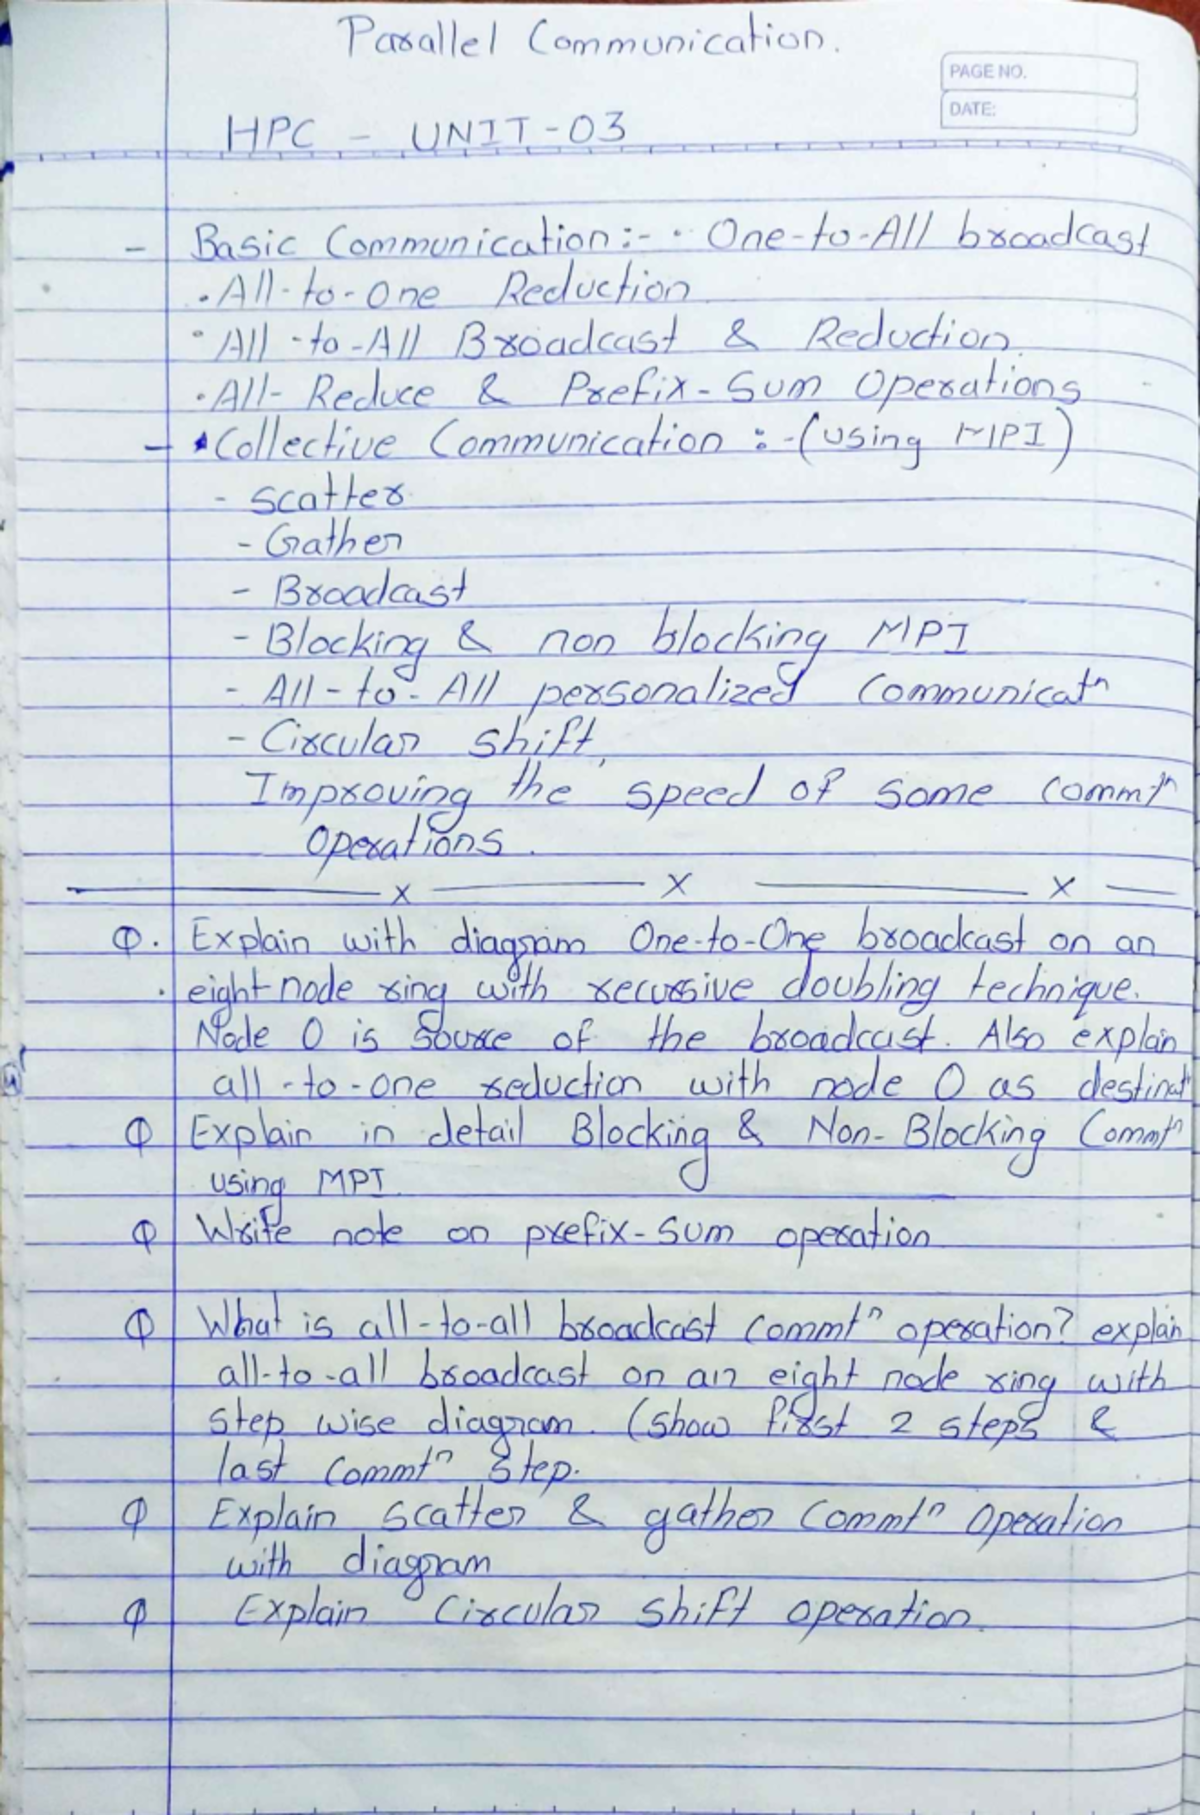 Parallel Communication.
PAGE NO.
DATE:
HPC - UNIT-03
- Basic Communication:- • One-to-All broadcast
• All-to-One Reduction
• All-to-All Broadcast & Reduction
• All-Reduce & Prefix-Sum Operations
- Collective Communication :-(using MPI)
- Scatter
- Gather
- Broadcast
- Blocking & non blocking MPI
- All-to-All personalized Communicatn
- Circular shift,
Improving the speed of some Commtn
Operations.
x x x
Q. Explain with diagram One-to-One broadcast on an
eight node ring with recursive doubling technique.
Node 0 is source of the broadcast. Also explain
all-to-one reduction with node 0 as destinat
Q Explain in detail Blocking & Non-Blocking Commtn
using MPI
Q Write note on prefix-sum operation
Q What is all-to-all broadcast commtn operation? explain
all-to-all broadcast on an eight node ring with
step wise diagram. (show first 2 steps &
last commtn step.
Q Explain scatter & gather Commtn Operation
with diagram
Q Explain Circular shift operation.